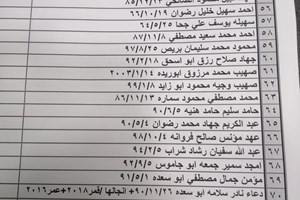 ٥٦ احمد سهيل خليل رضوان ٦٦/١٠/١٩
٥٧ سهيله يوسف علي جحا ٦٤/٥/٢٥
٥٨ احمد محمد سعيد مصطفي ٨٧/١١/٨
٥٩ محمود محمد سليمان بريص ٩٧/٨/٢٥
٦٠ جهاد صلاح رزق ابو اسحق ٩٢/٢/١٢
٦١ صهيب محمد مرزوق ابوريده ٢٠٠٣/١/١٤
٦٢ صهيب وجيه محمود ابو زايد ٩٩/٦
٦٣ محمد مصطفي محمود سماره ٨٦/١١/١٣
٦٤ حامد سليم حامد هنيه ٩٠/٦/٥
٦٥ عبد الكريم جهاد محمد رضوان ٩٠/٥/٤
٦٦ عهد مؤنس صالح فروانه ٩٨/١٠/٤
٦٧ عبد الله سفيان رشاد شراب ٩٤/٢/٥
٦٨ امجد سمير جمعه ابو جاموس ٩٢/٩/٥
٦٩ مؤمن جمال مصطفي ابو سعده ٩١/٥/١
٧٠ دعاء نادر سلامه ابو سعده ٩٠/١١/٢٦+ انجالها /قمر٢٠١٨+عمر٢٠١٦